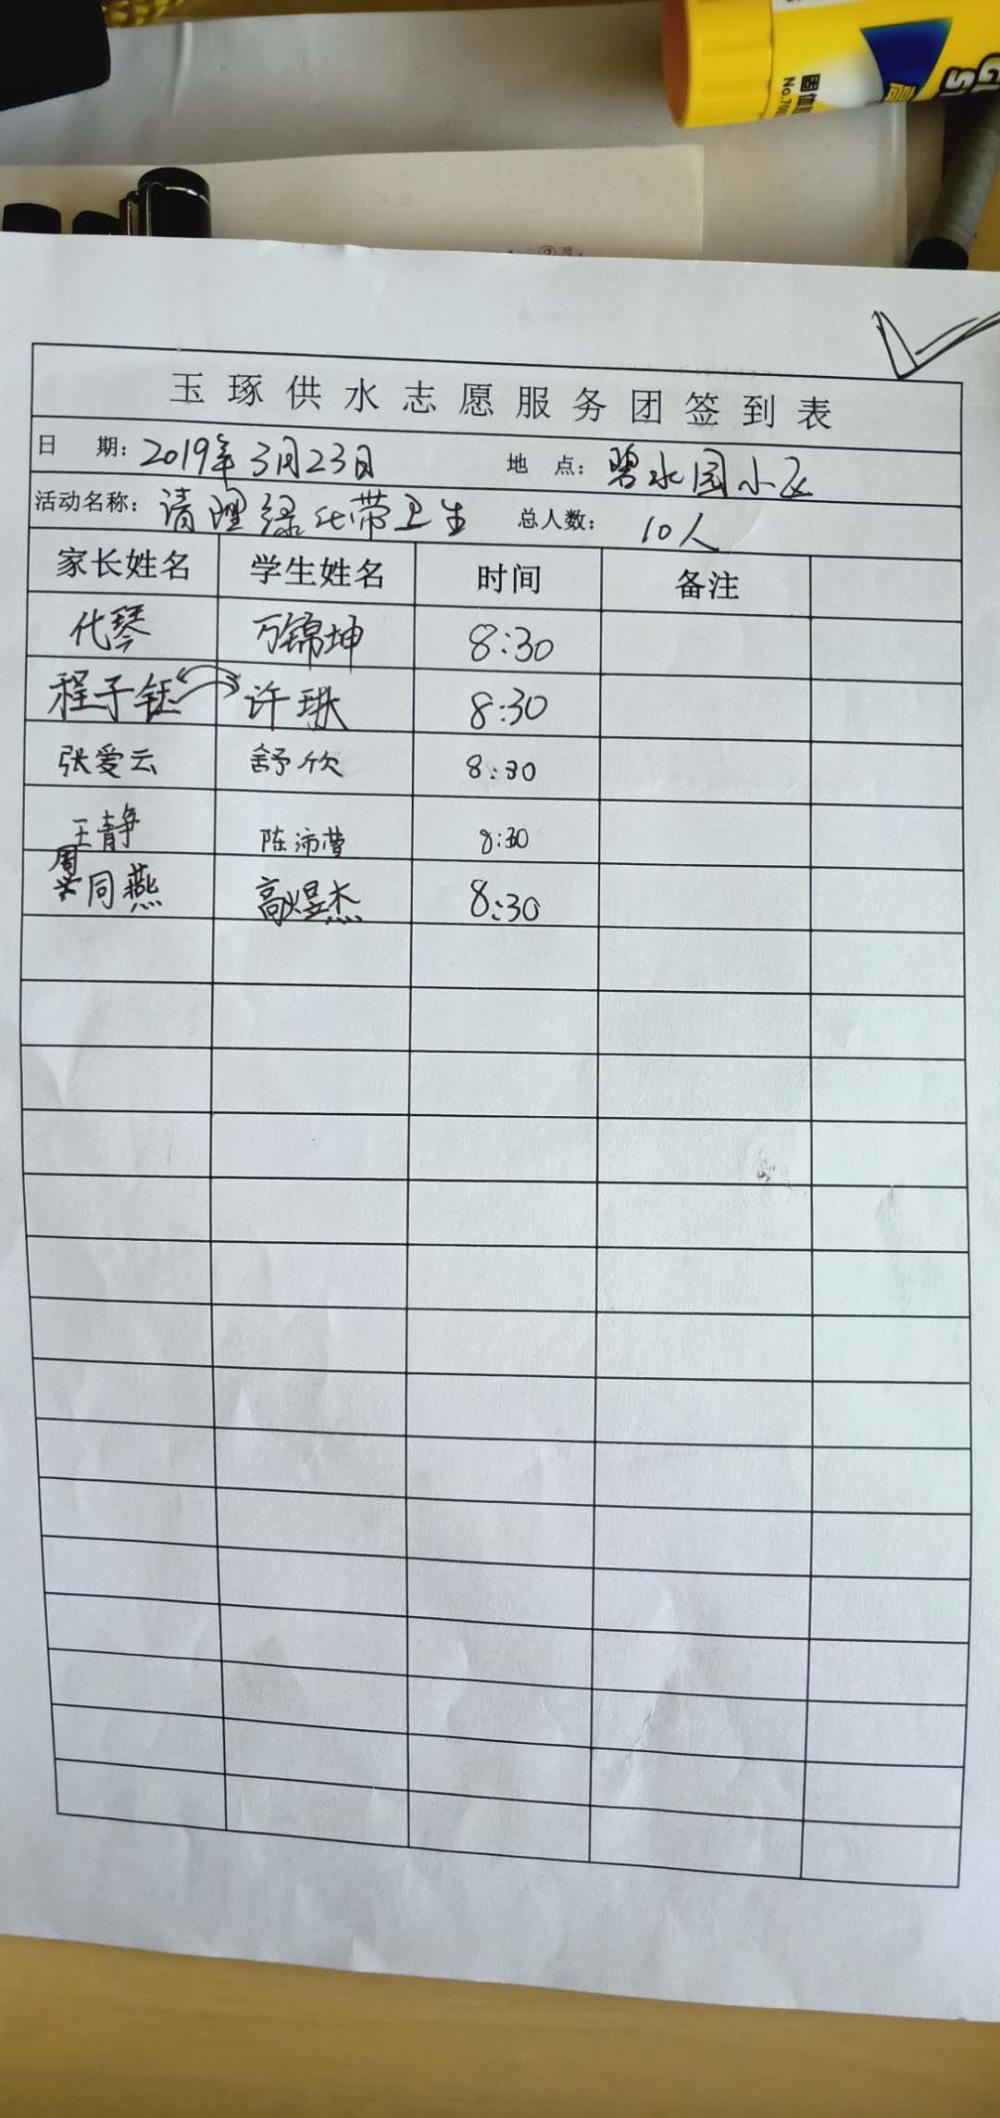 固体
No.70
玉琢供水志愿服务团签到表
日 期：2019年3月23日 地 点：碧水园小区
活动名称：请理绿化带卫生 总人数：10人
家长姓名 学生姓名 时间 备注
代琴 万锦坤 8:30
程子钰 许琳 8:30
张爱云 舒欣 8:30
王静 陈沛莹 8:30
周
同燕 高煜杰 8:30